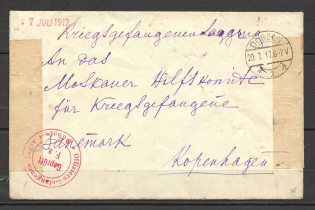 7 JULI 1917
Kriegsgefangenensendung
An das
Moskauer Hilfskomite
für Kriegsgefangene
Dänemark
Kopenhagen
DÖBELN
20. 7. 17. 6-7 V
Geprüft
F. a.